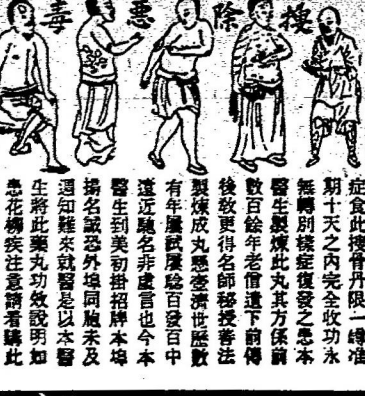 搜除惡毒
症食此搜骨丹限一罇准
期十天之內完全收功永
無轉別樣症復發之患本
醫生製煉此丸其方係前
數百餘年老僧遺下前傳
後敎更得名師秘授善法
製煉成丸懸壺濟世歷數
有年屢試屢驗百發百中
遠近馳名非虛言也今本
醫生到美初掛招牌本埠
揚名誠恐外埠同胞未及
週知難來就醫是以本醫
生將此藥丸功效說明如
患花柳疾注意請看購此